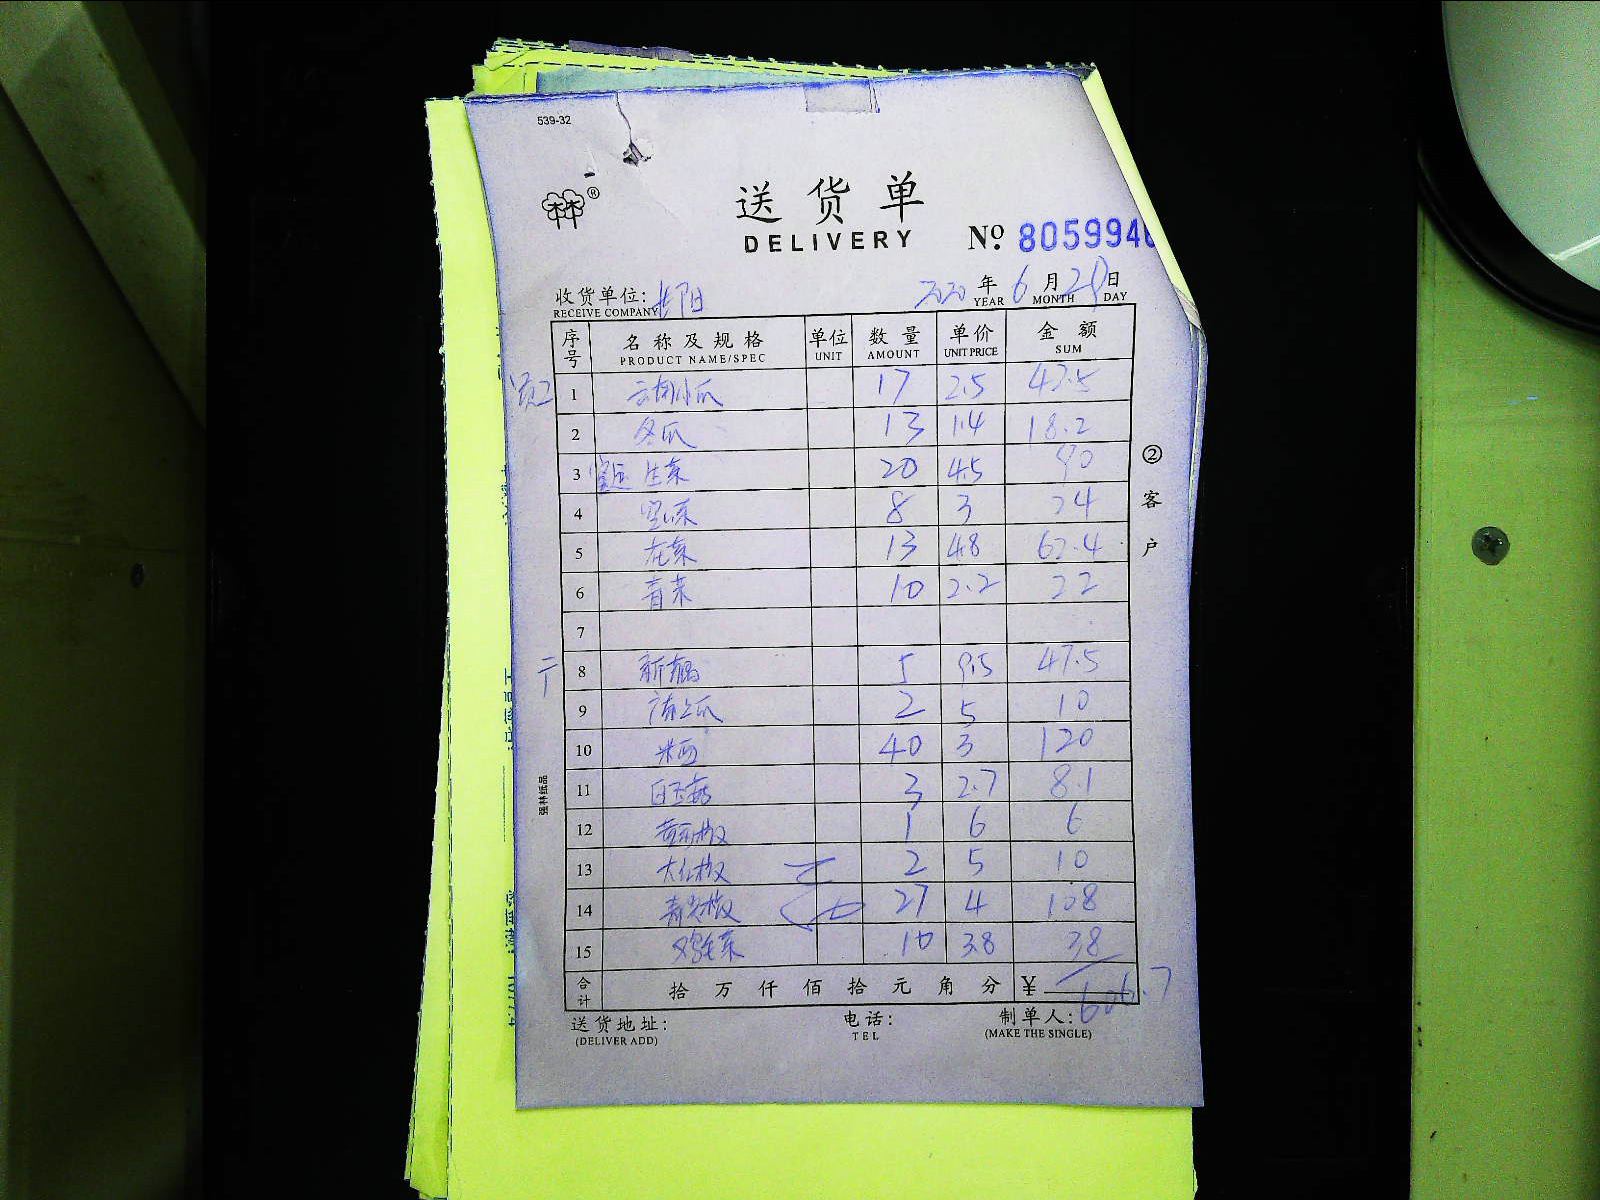 539-32
®
送货单
DELIVERY
№ 8059940
收货单位: 长阳 2020 年 6 月 29 日
RECEIVE COMPANY YEAR MONTH DAY
序号 名称及规格 单位 数量 单价 金额
PRODUCT NAME/SPEC UNIT AMOUNT UNIT PRICE SUM
1 17 2.5 42.5
2 冬瓜 13 1.4 18.2
3 生菜 20 4.5 90
4 空心菜 8 3 24
5 13 4.8 62.4
6 青菜 10 2.2 22
7
8 5 9.5 47.5
9 2 5 10
10 40 3 120
11 白玉菇 3 2.7 8.1
12 黄彩椒 1 6 6
13 大红椒 2 5 10
14 青尖椒 27 4 108
15 鸡毛菜 10 3.8 38
合计 拾 万 仟 佰 拾 元 角 分 ¥ 606.7
送货地址: 电话: 制单人:
(DELIVER ADD) TEL (MAKE THE SINGLE)
② 客户
强林纸品